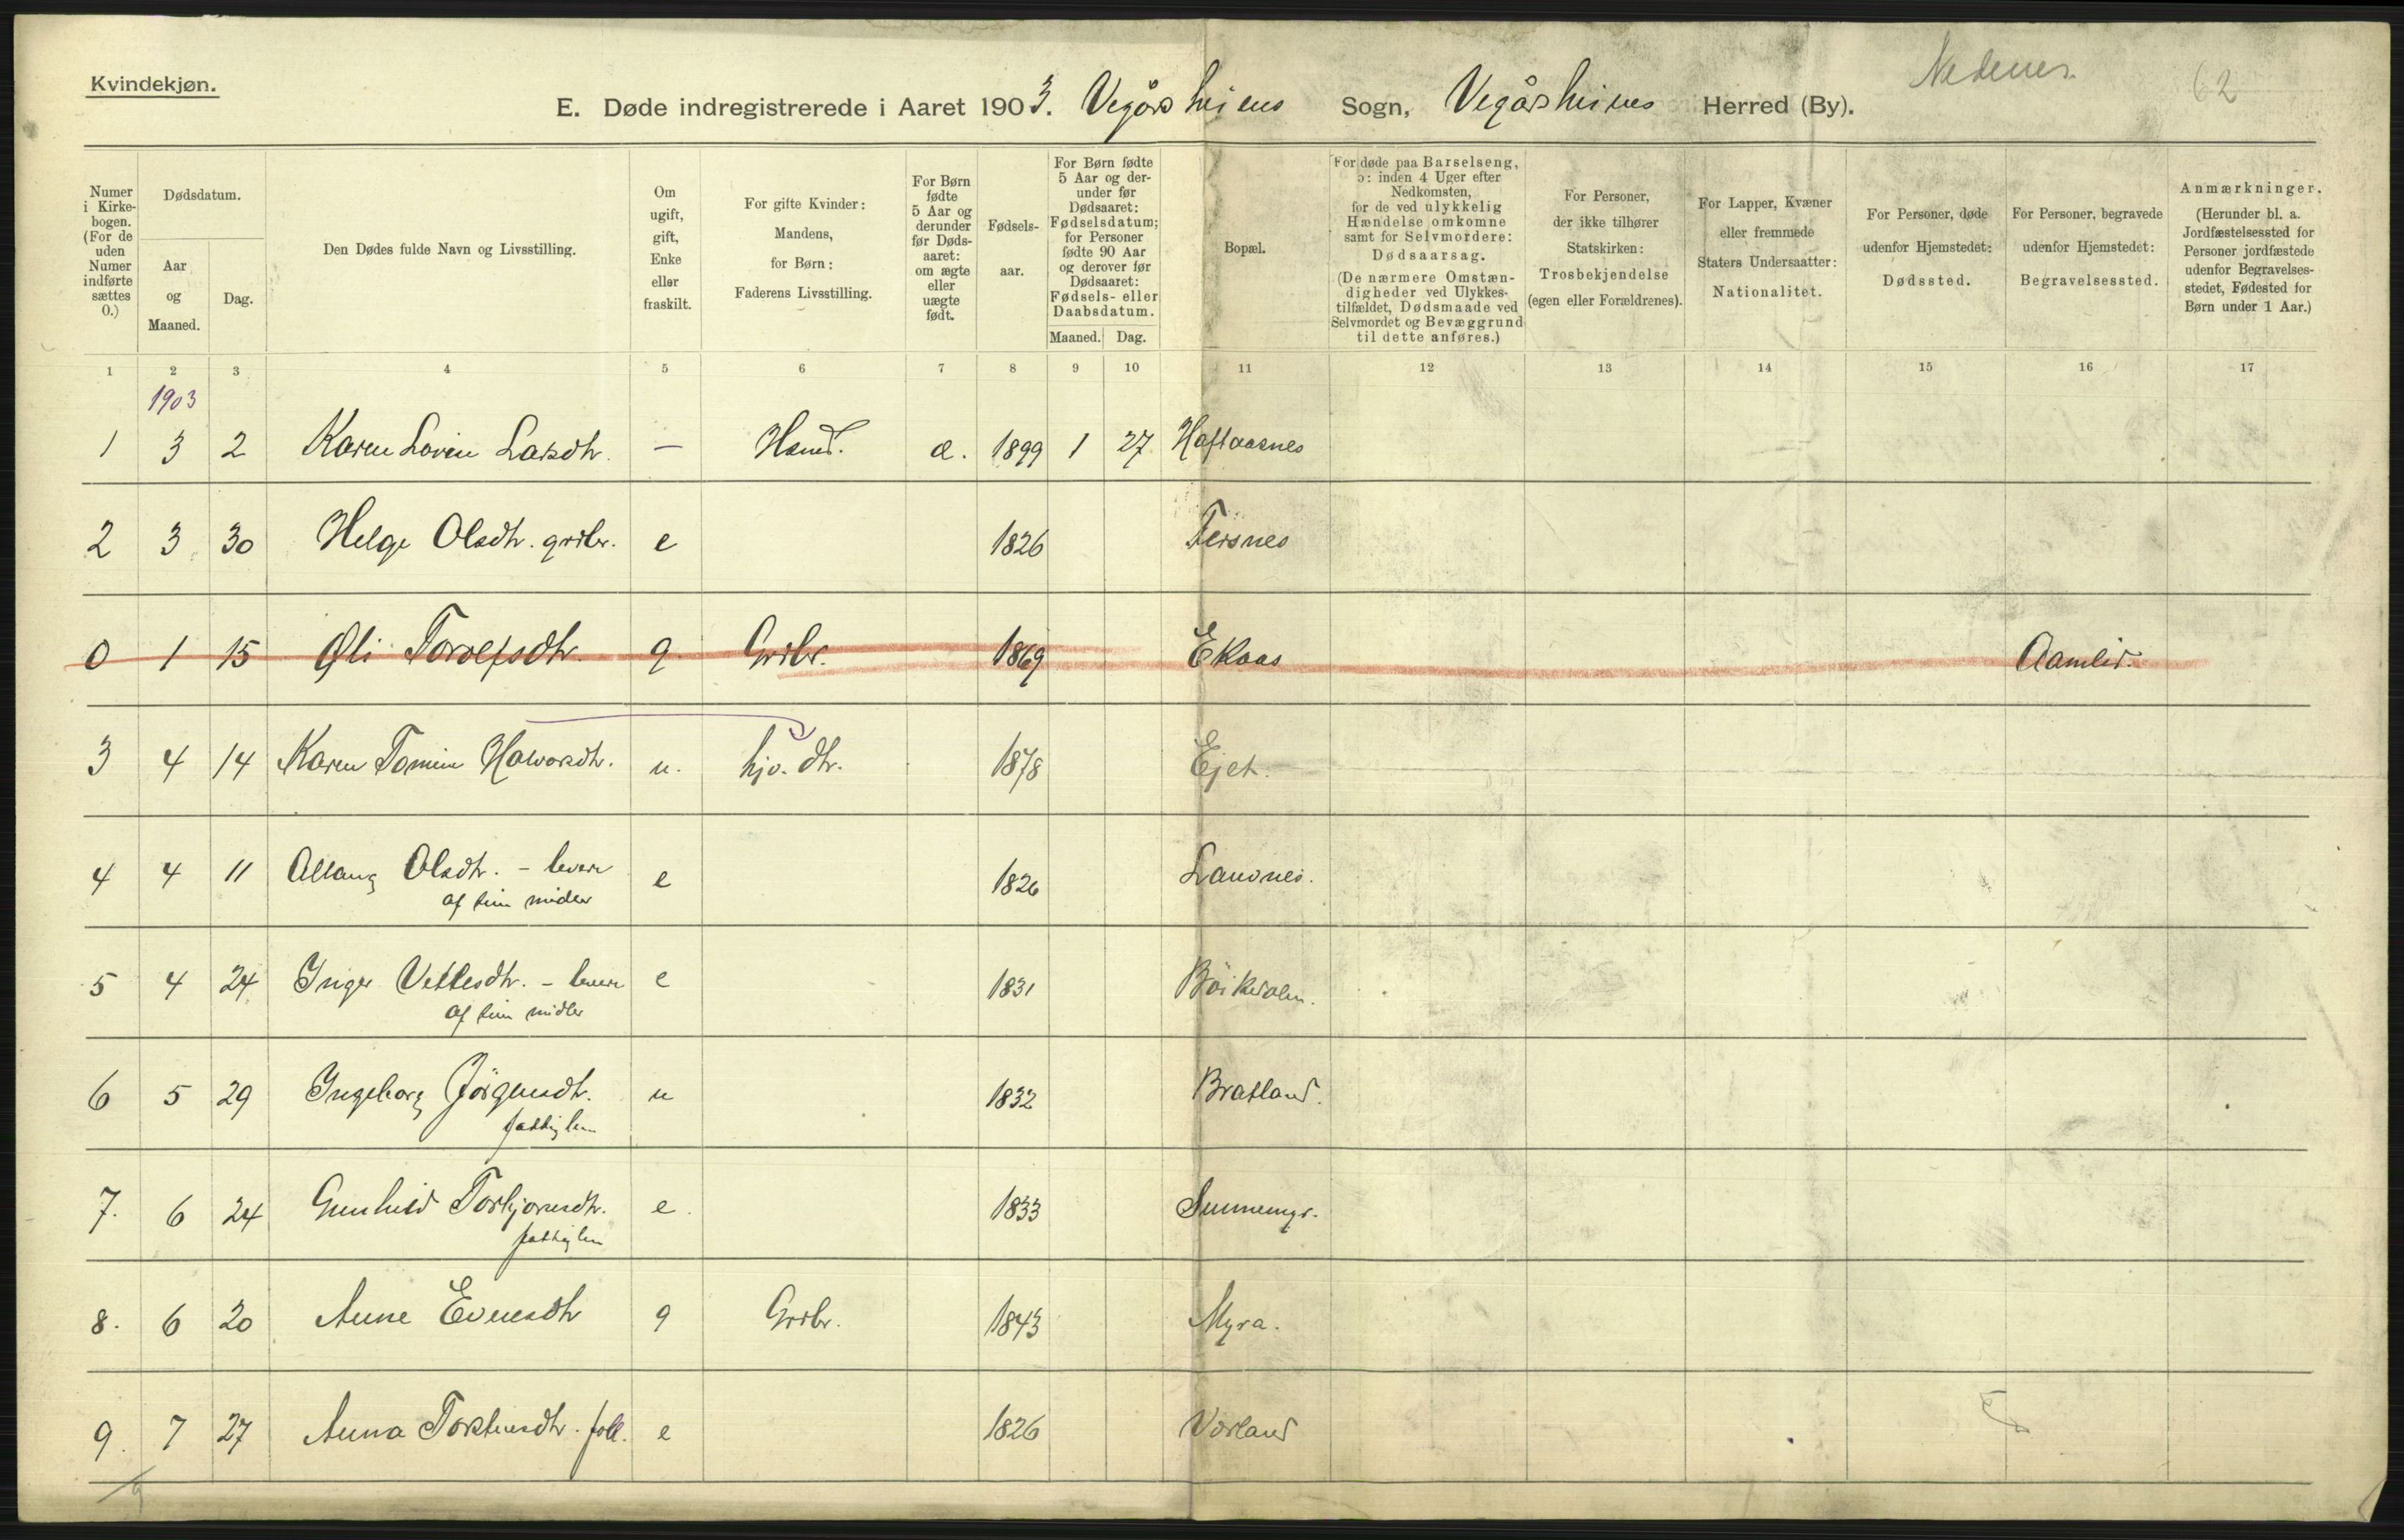 Kvindekjøn.
E. Døde indregistrerede i Aaret 1903. Vegårsheiens Sogn, Vegårsheiens Herred (By).
Nedenes
62
Numer i Kirkebogen. (For de uden Numer indførte sættes 0.)
Dødsdatum.
Aar og Maaned.
Dag.
Den Dødes fulde Navn og Livsstilling.
Om ugift, gift, Enke eller fraskilt.
For gifte Kvinder: Mandens, for Børn: Faderens Livsstilling.
For Børn fødte 5 Aar og derunder før Dødsaaret: om ægte eller uægte født.
Fødselsaar.
For Børn fødte 5 Aar og derunder før Dødsaaret: Fødselsdatum; for Personer fødte 90 Aar og derover før Dødsaaret: Fødsels- eller Daabsdatum.
Maaned. Dag.
Bopæl.
For døde paa Barselseng, ɔ: inden 4 Uger efter Nedkomsten, for de ved ulykkelig Hændelse omkomne samt for Selvmordere: Dødsaarsag.
(De nærmere Omstændigheder ved Ulykkestilfældet, Dødsmaade ved Selvmordet og Bevæggrund til dette anføres.)
For Personer, der ikke tilhører Statskirken: Trosbekjendelse (egen eller Forældrenes).
For Lapper, Kvæner eller fremmede Staters Undersaatter: Nationalitet.
For Personer, døde udenfor Hjemstedet: Dødssted.
For Personer, begravede udenfor Hjemstedet: Begravelsessted.
Anmærkninger. (Herunder bl. a. Jordfæstelsessted for Personer jordfæstede udenfor Begravelsesstedet, Fødested for Børn under 1 Aar.)
1 2 3 4 5 6 7 8 9 10 11 12 13 14 15 16 17
1903
1 3 2 Karen Lovise Larsdtr. — Hsmd. æ. 1899 1 27 Haftaasnes
2 3 30 Helge Olsdtr. grdbr. e 1826
0 1 15 Øli Torolfsdtr. g. Grdbr. 1869 Ekaas Aamlid.
3 4 14 Karen Tomine Halvorsdtr. u. hjv. dtr. 1878 Ejet.
4 4 11 Aslaug Olsdtr. – lever e 1826
af sine midler
5 4 24 Inger Vetlesdtr. – lever e 1831
af sine midler
6 5 29 Ingeborg Jörgensdtr. u 1832 Bratland.
fattiglem
7. 6 24 Gunhild Torbjørnsdtr. e. 1833 Sunnemyr.
fattiglem
8. 6 20 Anne Evensdtr g Grdbr. 1843 Myra.
9. 7 27 Anna Torstensdtr. e 1826 Vorland